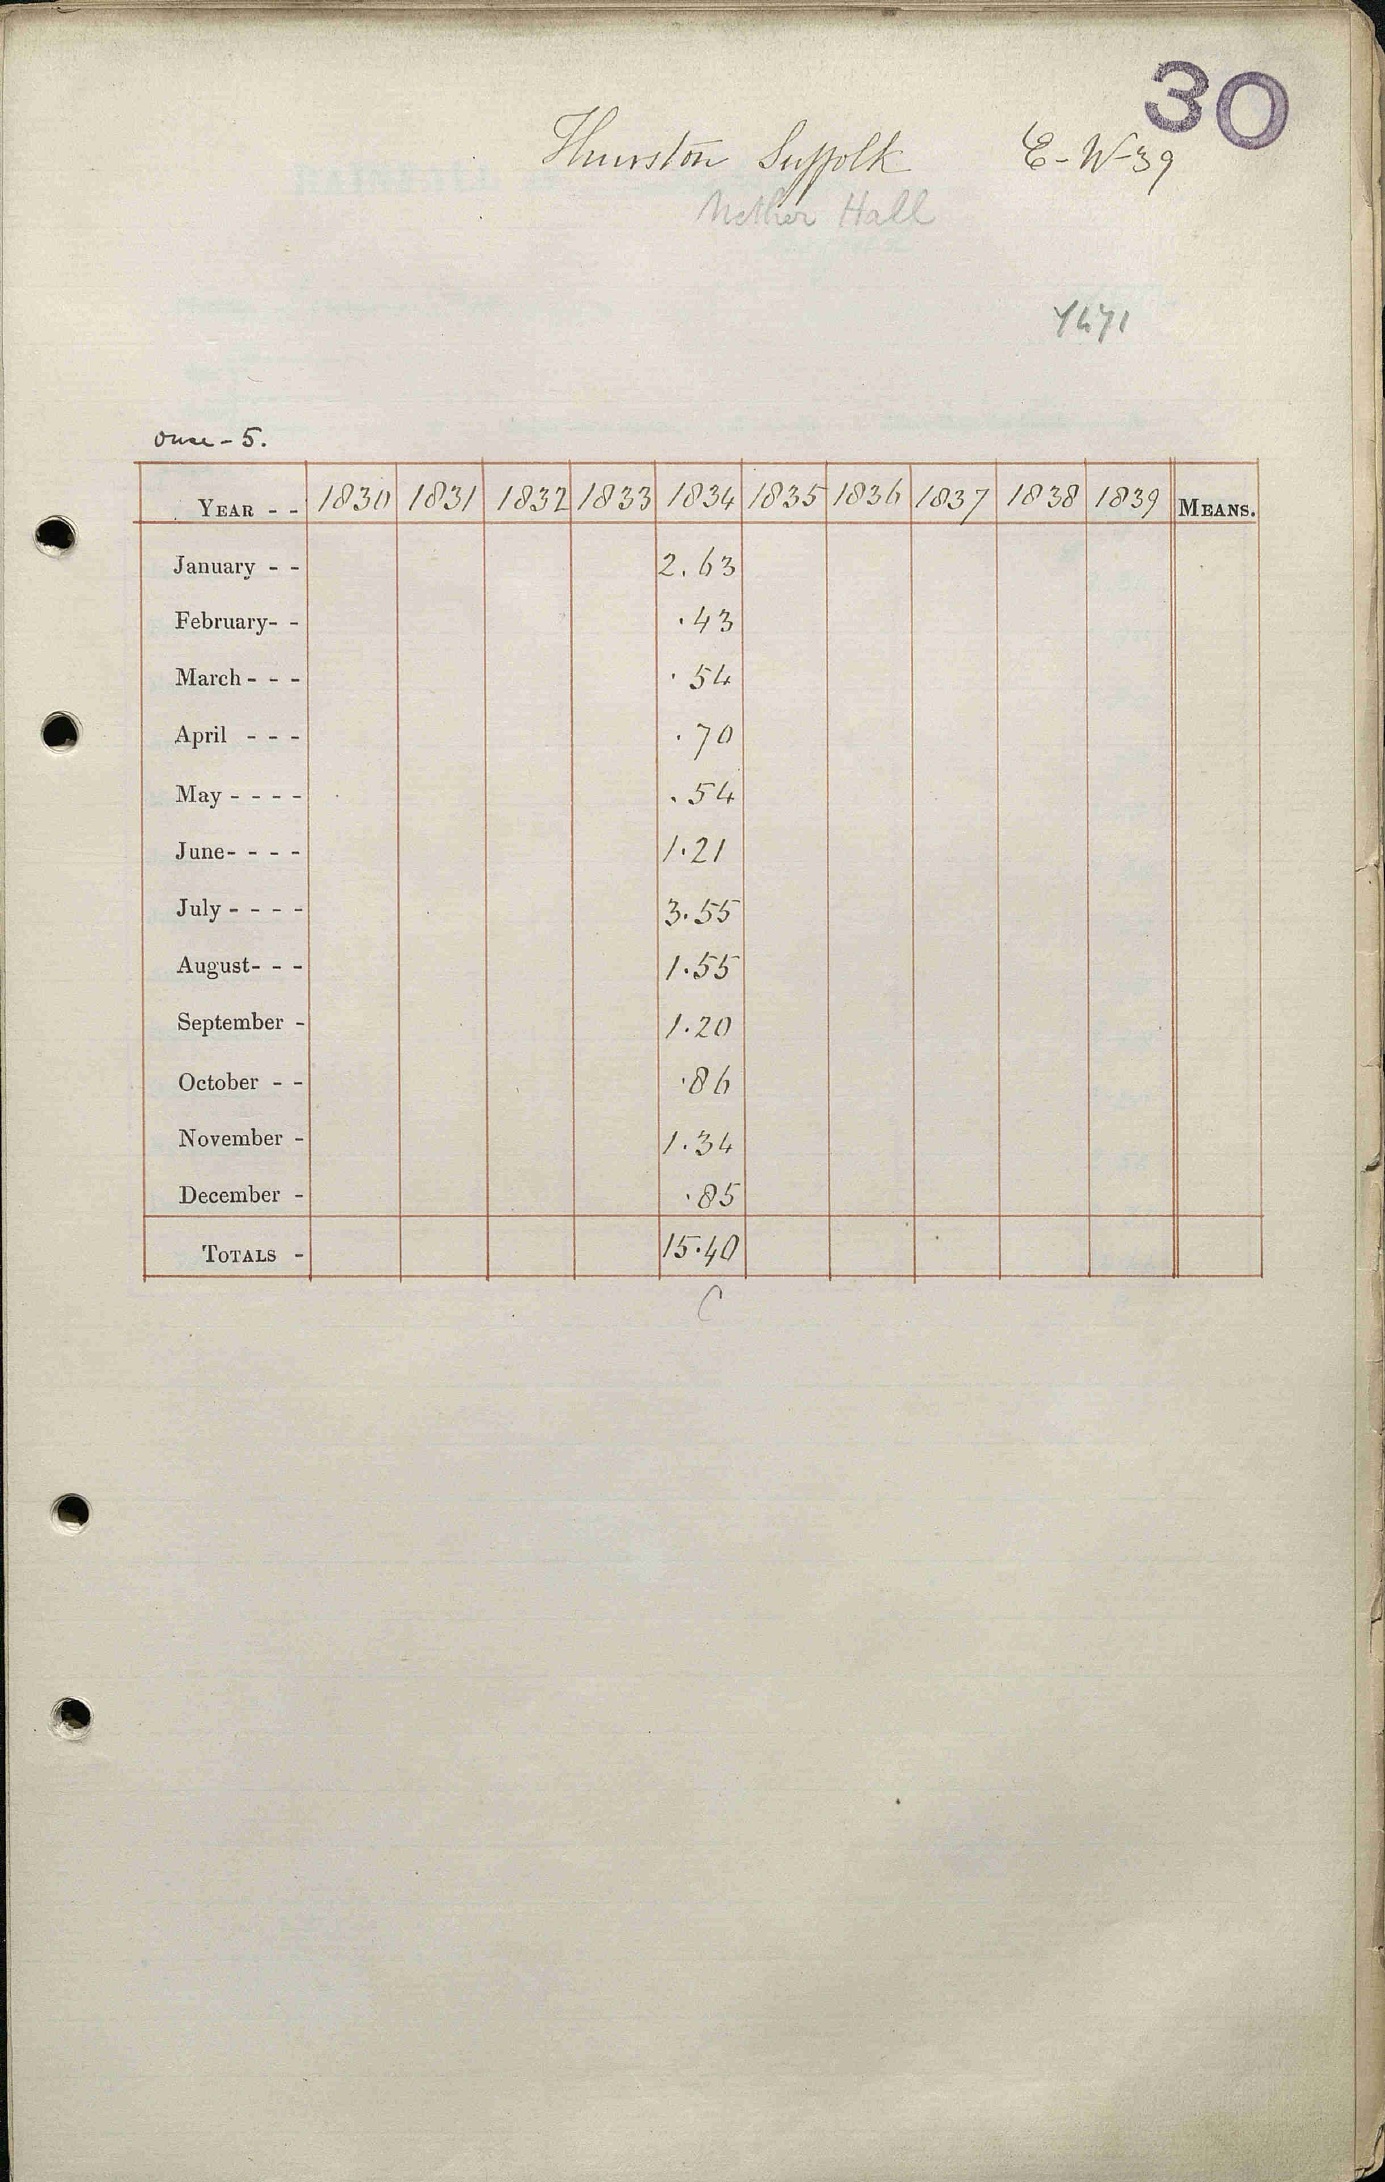 30
Thurston Suffolk E-W-39
Nether Hall
Ouse - 5.
YEAR - - 1830 1831 1832 1833 1834 1835 1836 1837 1838 1839 MEANS.
January - - 2.63
February- - .43
March - - - .54
April - - - .70
May - - - - .54
June- - - - 1.21
July - - - - 3.55
August- - - 1.55
September - 1.20
October - - .86
November - 1.34
December - .85
TOTALS - 15.40
C